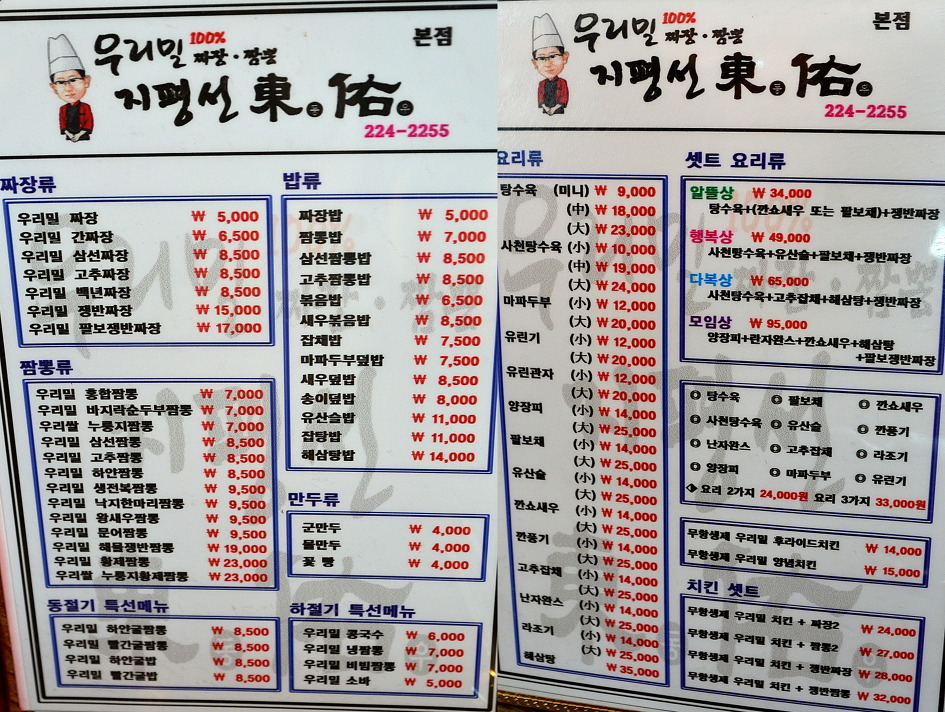 우리밀 100% 짜장·짬뽕
본점
지평선 東동 佑우
224-2255
짜장류
우리밀 짜장 ₩ 5,000
우리밀 간짜장 ₩ 6,500
우리밀 삼선짜장 ₩ 8,500
우리밀 고추짜장 ₩ 8,500
우리밀 백년짜장 ₩ 8,500
우리밀 쟁반짜장 ₩ 15,000
우리밀 팔보쟁반짜장 ₩ 17,000
짬뽕류
우리밀 홍합짬뽕 ₩ 7,000
우리밀 바지락순두부짬뽕 ₩ 7,000
우리쌀 누룽지짬뽕 ₩ 7,000
우리밀 삼선짬뽕 ₩ 8,500
우리밀 고추짬뽕 ₩ 8,500
우리밀 하얀짬뽕 ₩ 8,500
우리밀 생전복짬뽕 ₩ 9,500
우리밀 낙지한마리짬뽕 ₩ 9,500
우리밀 왕새우짬뽕 ₩ 9,500
우리밀 문어짬뽕 ₩ 9,500
우리밀 해물쟁반짬뽕 ₩ 19,000
우리밀 황제짬뽕 ₩ 23,000
우리쌀 누룽지황제짬뽕 ₩ 23,000
동절기 특선메뉴
우리밀 하얀굴짬뽕 ₩ 8,500
우리밀 빨간굴짬뽕 ₩ 8,500
우리밀 하얀굴밥 ₩ 8,500
우리밀 빨간굴밥 ₩ 8,500
밥류
짜장밥 ₩ 5,000
짬뽕밥 ₩ 7,000
삼선짬뽕밥 ₩ 8,500
고추짬뽕밥 ₩ 8,500
볶음밥 ₩ 6,500
새우볶음밥 ₩ 8,500
잡채밥 ₩ 7,500
마파두부덮밥 ₩ 7,500
새우덮밥 ₩ 8,500
송이덮밥 ₩ 8,000
유산슬밥 ₩ 11,000
잡탕밥 ₩ 11,000
해삼탕밥 ₩ 14,000
만두류
군만두 ₩ 4,000
물만두 ₩ 4,000
꽃 빵 ₩ 4,000
하절기 특선메뉴
우리밀 콩국수 ₩ 6,000
우리밀 냉짬뽕 ₩ 7,000
우리밀 비빔짬뽕 ₩ 7,000
우리밀 소바 ₩ 5,000
우리밀 100% 짜장·짬뽕
본점
지평선 東동 佑우
224-2255
요리류
탕수육 (미니) ₩ 9,000
(中) ₩ 18,000
(大) ₩ 23,000
사천탕수육 (小) ₩ 10,000
(中) ₩ 19,000
(大) ₩ 24,000
마파두부 (小) ₩ 12,000
(大) ₩ 20,000
유린기 (小) ₩ 12,000
(大) ₩ 20,000
유린관자 (小) ₩ 12,000
(大) ₩ 20,000
양장피 (小) ₩ 14,000
(大) ₩ 25,000
팔보채 (小) ₩ 14,000
(大) ₩ 25,000
유산슬 (小) ₩ 14,000
(大) ₩ 25,000
깐쇼새우 (小) ₩ 14,000
(大) ₩ 25,000
깐풍기 (小) ₩ 14,000
(大) ₩ 25,000
고추잡채 (小) ₩ 14,000
(大) ₩ 25,000
난자완스 (小) ₩ 14,000
(大) ₩ 25,000
라조기 (小) ₩ 14,000
(大) ₩ 25,000
해삼탕 ₩ 35,000
셋트 요리류
알뜰상 ₩ 34,000
탕수육+(깐쇼새우 또는 팔보채)+쟁반짜장
행복상 ₩ 49,000
사천탕수육+유산슬+팔보채+쟁반짜장
다복상 ₩ 65,000
사천탕수육+고추잡채+해삼탕+쟁반짜장
모임상 ₩ 95,000
양장피+란자완스+깐쇼새우+해삼탕
+팔보쟁반짜장
◎ 탕수육 ◎ 팔보채 ◎ 깐쇼새우
◎ 사천탕수육 ◎ 유산슬 ◎ 깐풍기
◎ 난자완스 ◎ 고추잡채 ◎ 라조기
◎ 양장피 ◎ 마파두부 ◎ 유린기
요리 2가지 24,000원 요리 3가지 33,000원
무항생제 우리밀 후라이드치킨 ₩ 14,000
무항생제 우리밀 양념치킨 ₩ 15,000
치킨 셋트
무항생제 우리밀 치킨 + 짜장2 ₩ 24,000
무항생제 우리밀 치킨 + 짬뽕2 ₩ 27,000
무항생제 우리밀 치킨 + 쟁반짜장 ₩ 28,000
무항생제 우리밀 치킨 + 쟁반짬뽕 ₩ 32,000